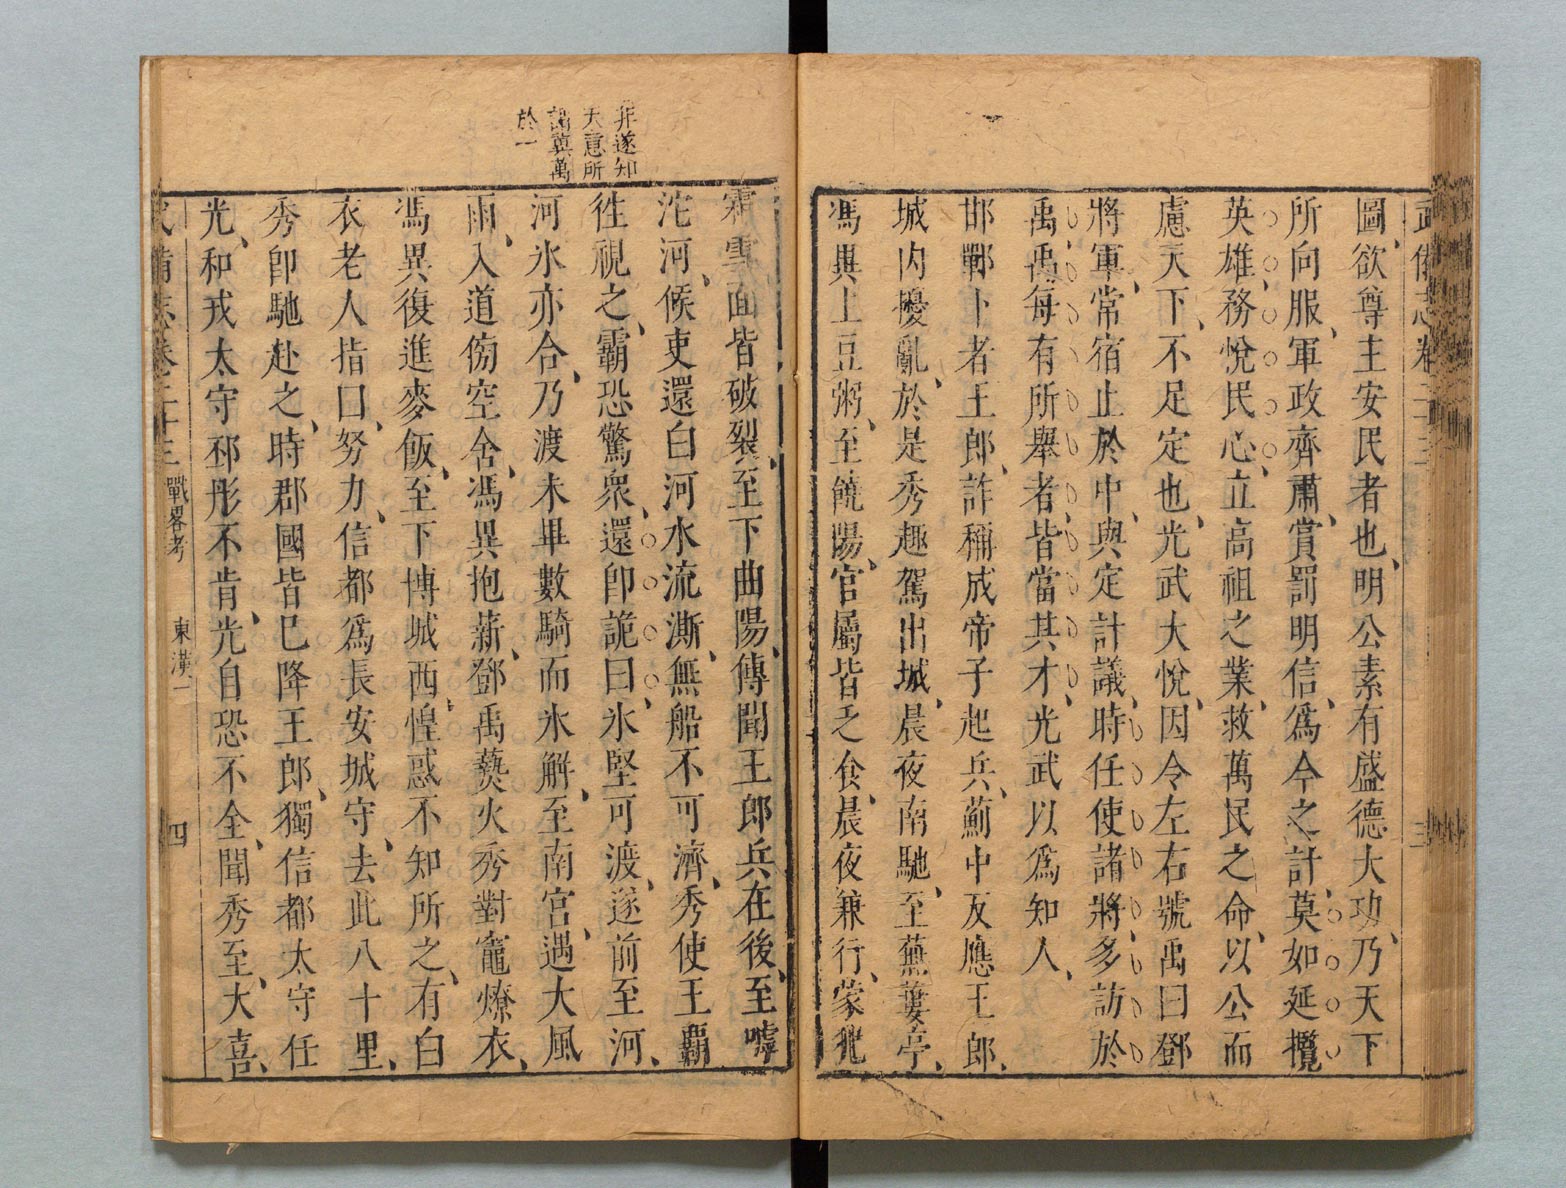 武備志卷二十三
三
圖、欲尊主安民者也、明公素有盛德大功、乃天下
所向服、軍政齊肅、賞罰明信、爲今之計、莫如延攬
英雄、務悅民心、立高祖之業、救萬民之命、以公而
慮天下、不足定也、光武大悅、因令左右號禹曰鄧
將軍、常宿止於中、與定計議、時任使諸將、多訪於
禹、禹每有所舉者、皆當其才、光武以爲知人、
邯鄲卜者王郎、詐稱成帝子起兵、薊中反應王郎、
城内擾亂、於是秀趣駕出城、晨夜南馳、至蕪蔞亭、
馮異上豆粥、至饒陽、官屬皆乏食、晨夜兼行、蒙犯
霜雪、面皆破裂、至下曲陽、傳聞王郎兵在後、至嘑
沱河、候吏還白河水流澌、無船不可濟、秀使王霸
徃視之、霸恐驚衆、還卽詭曰、氷堅可渡、遂前至河、
河氷亦合、乃渡未畢數騎而氷解、至南宮、遇大風
雨、入道傍空舍、馮異抱薪、鄧禹爇火、秀對竈燎衣、
馮異復進麥飯、至下博城西、惶惑不知所之、有白
衣老人指曰、努力、信都爲長安城守、去此八十里、
秀卽馳赴之、時郡國皆巳降王郎、獨信都太守任
光、和戎太守邳彤不肯、光自恐不全、聞秀至、大喜、
非遂知
天意所
謁冀萬
於一
武備志卷二十三 戰畧考 東漢一 四